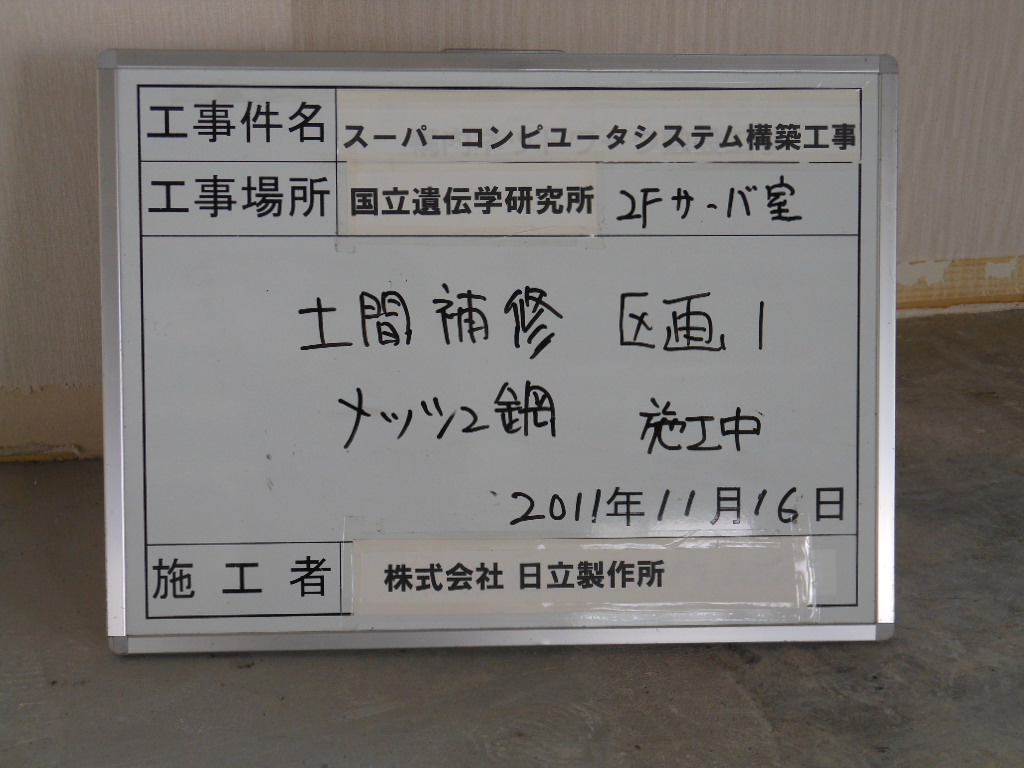 工事件名 スーパーコンピュータシステム構築工事
工事場所 国立遺伝学研究所 2Fサーバ室
土間補修 区画1
メッシュ鋼 施工中
2011年11月16日
施工者 株式会社 日立製作所